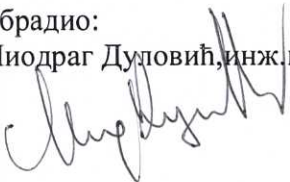 брадио:
Миодраг Дуловић,инж.